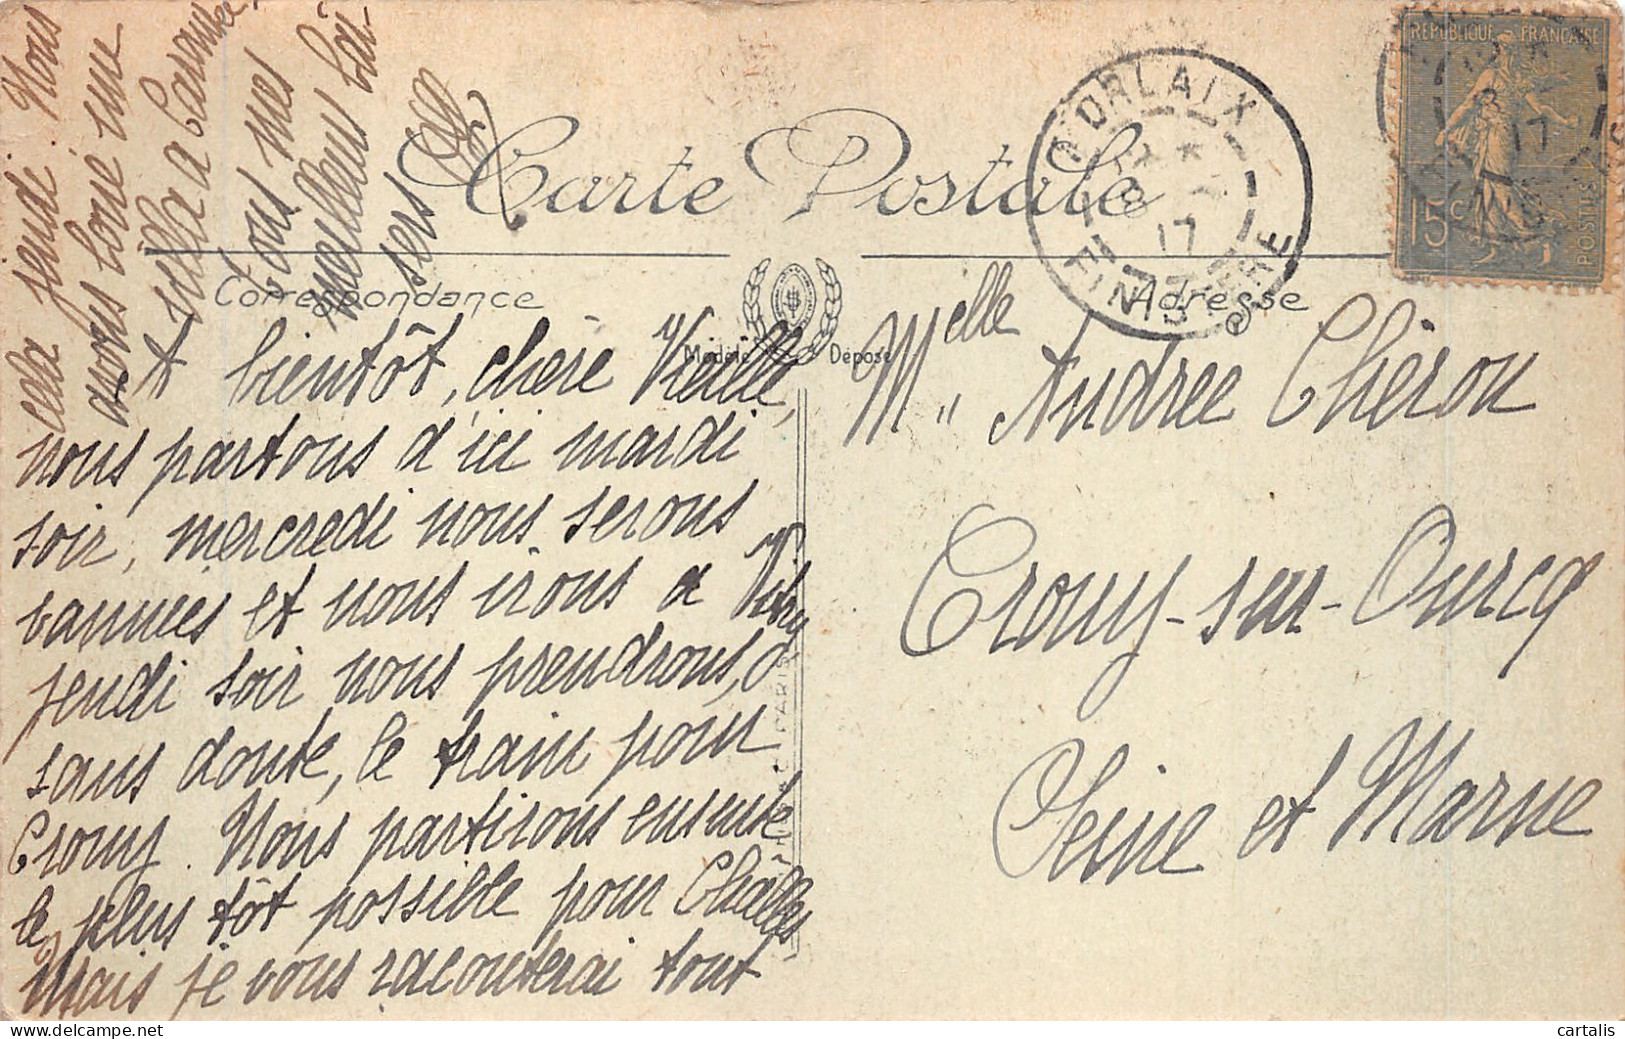 Carte Postale
Correspondance
Adresse
Modèle Déposé
RÉPUBLIQUE FRANÇAISE
15c
POSTES
MORLAIX
17
FINISTERE
A bientôt, chère Vieille,
nous partons d'ici mardi
soir, mercredi nous serons
vannées et nous irons à Vitry
jeudi soir nous prendrons,
sans doute, le train pour
Crouy. Nous partirons ensuite
le plus tôt possible pour Châlles,
Mais je vous raconterai tout
cela jeudi. Nous
avons loué une
villa à Carantec,
tous mes
meilleurs bai-
sers
Melle Andree Chéron
Crouy-sur-Ourcq
Seine et Marne
PARIS
cartalis